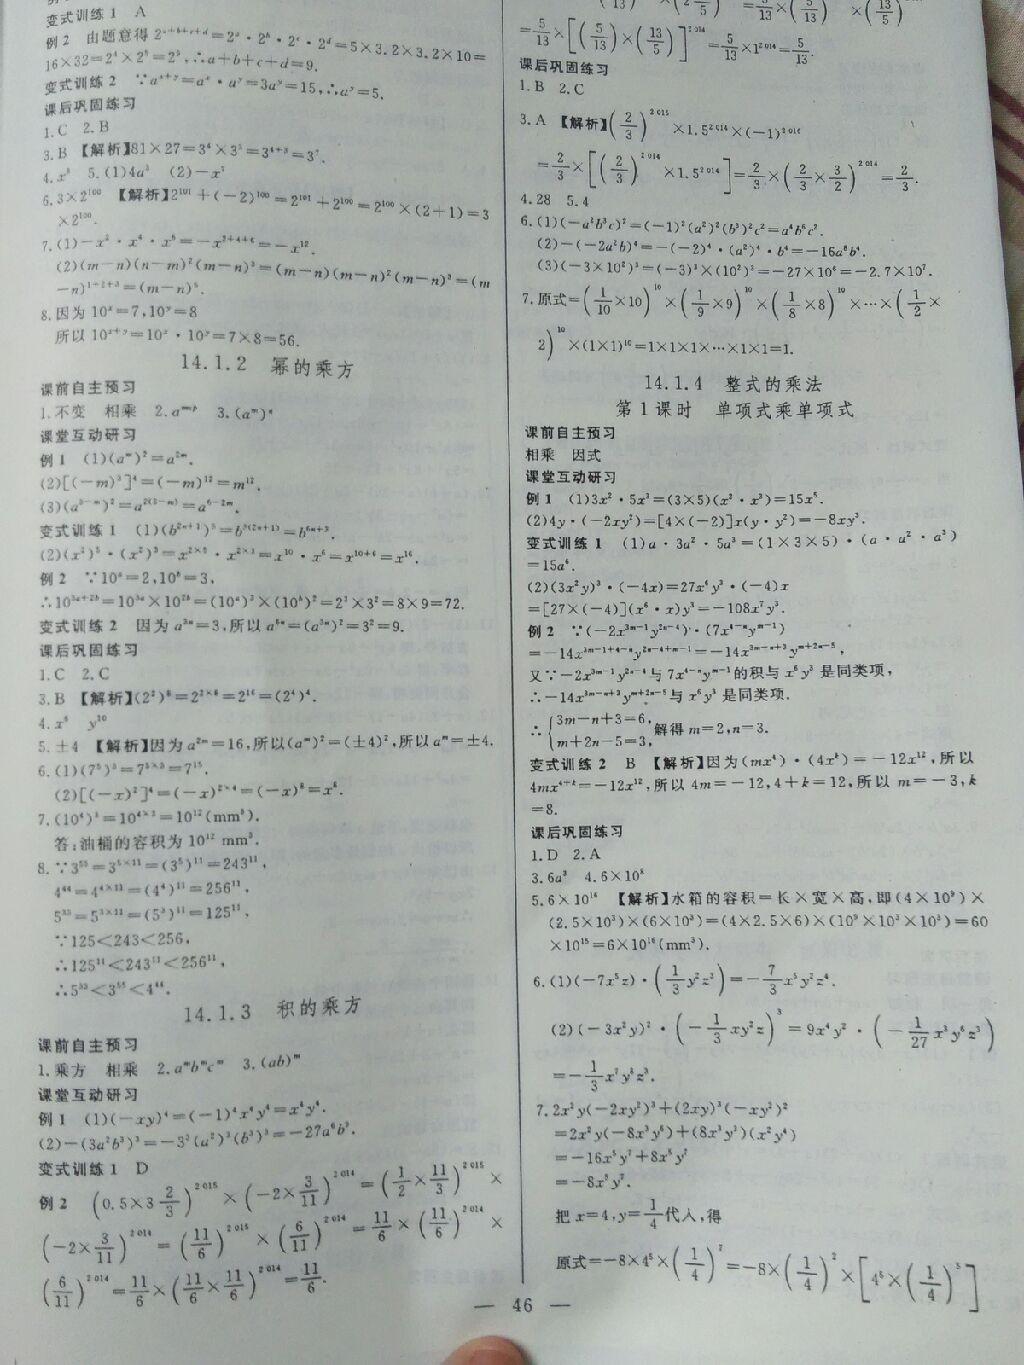 变式训练1 A
例2 由题意得 2ᵃ⁺ᵇ⁺ᶜ⁺ᵈ=2ᵃ·2ᵇ·2ᶜ·2ᵈ=5×3.2×3.2×10=
16×32=2⁴×2⁵=2⁹,∴a+b+c+d=9.
变式训练2 ∵aˣ⁺ʸ=aˣ·aʸ=3aʸ=15,∴aʸ=5.
课后巩固练习
1.C 2.B
3.B 【解析】81×27=3⁴×3³=3⁴⁺³=3⁷.
5.(1)4a³ (2)-x⁷
6.3×2¹⁰⁰ 【解析】2¹⁰¹+(-2)¹⁰⁰=2¹⁰¹+2¹⁰⁰=2¹⁰⁰×(2+1)=3
×2¹⁰⁰.
7.(1)-x²·x⁴·x⁶=-x²⁺⁴⁺⁶=-x¹².
(2)(m-n)(n-m)²(m-n)³=(m-n)(m-n)²(m-n)³=(m
-n)¹⁺²⁺³=(m-n)⁶.
8.因为10ˣ=7,10ʸ=8
所以10ˣ⁺ʸ=10ˣ·10ʸ=7×8=56.
14.1.2 幂的乘方
课前自主预习
1.不变 相乘 2.aᵐⁿᵖ 3.(aᵐ)ⁿ
课堂互动研习
例1 (1)(aᵐ)²=a²ᵐ.
(2)[(-m)³]⁴=(-m)¹²=m¹².
(3)(a³⁻ᵐ)²=a²⁽³⁻ᵐ⁾=a⁶⁻²ᵐ.
变式训练1 (1)(b²ⁿ⁺¹)³=b³⁽²ⁿ⁺¹⁾=b⁶ⁿ⁺³.
(2)(x²)⁵·(x²)³=x²ˣ⁵·x²ˣ³=x¹⁰·x⁶=x¹⁰⁺⁶=x¹⁶.
例2 ∵10ᵃ=2,10ᵇ=3,
∴10³ᵃ⁺²ᵇ=10³ᵃ×10²ᵇ=(10ᵃ)³×(10ᵇ)²=2³×3²=8×9=72.
变式训练2 因为a³ⁿ=3,所以a⁶ⁿ=(a³ⁿ)²=3²=9.
课后巩固练习
1.C 2.C
3.B 【解析】(2²)⁸=2²ˣ⁸=2¹⁶=(2⁴)⁴.
5.±4 【解析】因为a²ᵐ=16,所以(aᵐ)²=(±4)²,所以aᵐ=±4.
6.(1)(7⁵)³=7⁵ˣ³=7¹⁵.
(2)[(-x)²]⁴=(-x)²ˣ⁴=(-x)⁸=x⁸.
7.(10⁴)³=10⁴ˣ³=10¹²(mm³).
答:油桶的容积为10¹² mm³.
8.∵3⁵⁵=3⁵ˣ¹¹=(3⁵)¹¹=243¹¹,
4⁴⁴=4⁴ˣ¹¹=(4⁴)¹¹=256¹¹,
5³³=5³ˣ¹¹=(5³)¹¹=125¹¹,
∵125<243<256,
∴125¹¹<243¹¹<256¹¹,
∴5³³<3⁵⁵<4⁴⁴.
14.1.3 积的乘方
课前自主预习
1.乘方 相乘 2.aᵐbᵐcᵐ 3.(ab)ᵐ
课堂互动研习
例1 (1)(-xy)⁴=(-1)⁴x⁴y⁴=x⁴y⁴.
(2)-(3a²b³)³=-3³(a²)³(b³)³=-27a⁶b⁹.
变式训练1 D
例2 (0.5×3 2/3)²⁰¹⁵×(-2×3/11)²⁰¹⁴=(1/2×11/3)²⁰¹⁵×
(-2×3/11)²⁰¹⁴=(11/6)²⁰¹⁵×(6/11)²⁰¹⁴=11/6×(11/6)²⁰¹⁴×
(6/11)²⁰¹⁴=11/6×(11/6×11/6)²⁰¹⁴=11/6.
=5/13×[(5/13)×(13/5)]²⁰¹⁴=5/13×1²⁰¹⁴=5/13.
课后巩固练习
1.B 2.C
3.A 【解析】(2/3)²⁰¹⁵×1.5²⁰¹⁴×(-1)²⁰¹⁶
=2/3×[(2/3)²⁰¹⁴×1.5²⁰¹⁴]=2/3×(2/3×3/2)²⁰¹⁴=2/3.
4.28 5.4
6.(1)(-a²b³c)²=(-1)²(a²)²(b³)²c²=a⁴b⁶c².
(2)-(-2a²b)⁴=-(-2)⁴·(a²)⁴·b⁴=-16a⁸b⁴.
(3)(-3×10²)³=(-3)³×(10²)³=-27×10⁶=-2.7×10⁷.
7.原式=(1/10×10)¹⁰×(1/9×9)¹⁰×(1/8×8)¹⁰×…×(1/2×
2)¹⁰×(1×1)¹⁰=1×1×1×…×1×1=1.
14.1.4 整式的乘法
第1课时 单项式乘单项式
课前自主预习
相乘 因式
课堂互动研习
例1 (1)3x²·5x³=(3×5)(x²·x³)=15x⁵.
(2)4y·(-2xy²)=[4×(-2)]x(y·y²)=-8xy³.
变式训练1 (1)a·3a²·5a³=(1×3×5)·(a·a²·a³)
=15a⁶.
(2)(3x²y)³·(-4x)=27x⁶y³·(-4)x
=[27×(-4)](x⁶·x)y³=-108x⁷y³.
例2 ∵(-2x³ᵐ⁻¹y²ⁿ⁻⁴)·(7x⁴⁻ⁿyᵐ⁻¹)
=-14x³ᵐ⁻¹⁺⁴⁻ⁿy²ⁿ⁻⁴⁺ᵐ⁻¹=-14x³ᵐ⁻ⁿ⁺³yᵐ⁺²ⁿ⁻⁵,
又∵-2x³ᵐ⁻¹y²ⁿ⁻⁴与7x⁴⁻ⁿyᵐ⁻¹的积与x⁶y³是同类项,
∴-14x³ᵐ⁻ⁿ⁺³yᵐ⁺²ⁿ⁻⁵与x⁶y³是同类项.
∴{3m-n+3=6, m+2n-5=3, 解得m=2,n=3.
变式训练2 B 【解析】因为(mx⁴)·(4xᵏ)=-12x¹²,所以
4mx⁴⁺ᵏ=-12x¹²,所以4m=-12,4+k=12,所以m=-3,k
=8.
课后巩固练习
1.D 2.A
3.6a³ 4.6×10⁸
5.6×10¹⁶ 【解析】水箱的容积=长×宽×高,即(4×10⁹)×
(2.5×10³)×(6×10³)=(4×2.5×6)×(10⁹×10³×10³)=60
×10¹⁵=6×10¹⁶(mm³).
6.(1)(-7x⁵z)·(1/3y²z³)=-7/3x⁵y²z⁴.
(2)(-3x²y)²·(-1/3xy²z)³=9x⁴y²·(-1/27x³y⁶z³)
=-1/3x⁷y⁸z³.
7.2x²y(-2xy²)³+(2xy)³(-xy²)²
=2x²y(-8x³y⁶)+(8x³y³)(x²y⁴)
=-16x⁵y⁷+8x⁵y⁷
=-8x⁵y⁷.
把x=4,y=1/4代入,得
原式=-8×4⁵×(1/4)⁷=-8×(1/4)²×[4⁵×(1/4)⁵]
— 46 —